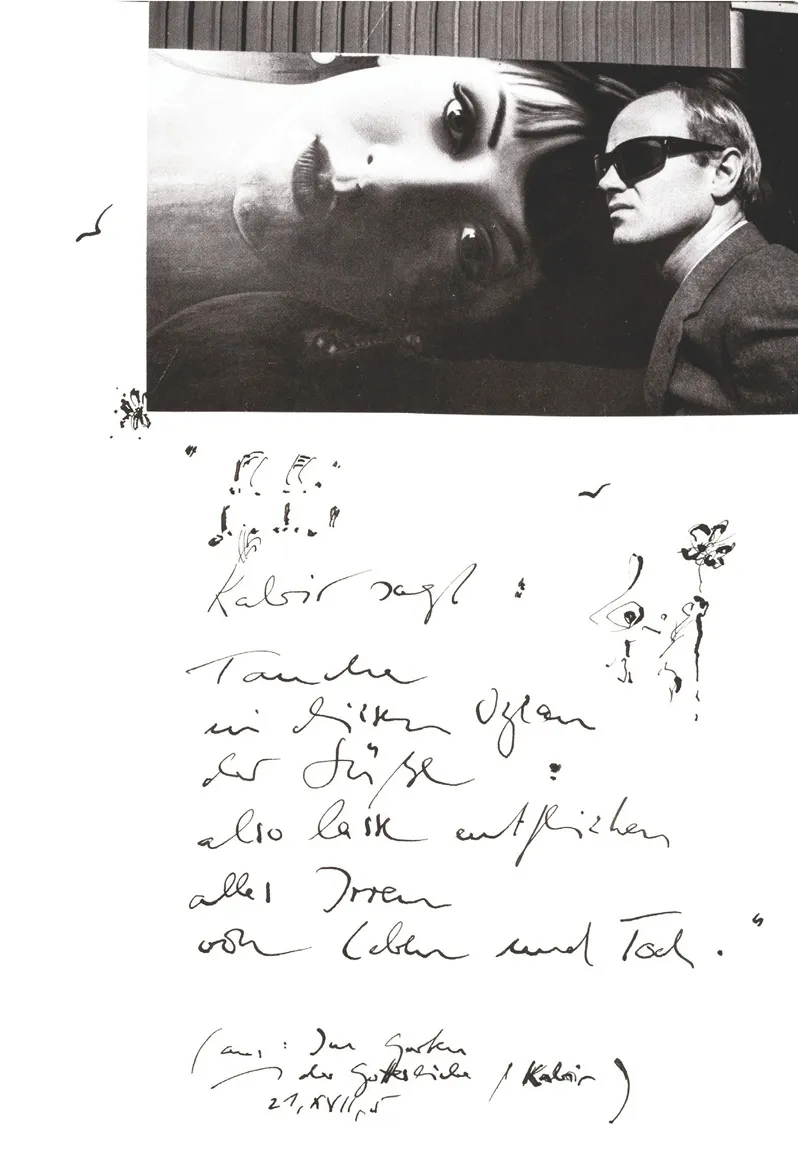 Kabir sagt :
Tauche
in diesen Ozean
der Süße :
also lass entfliehen
alles Irren
von Leben und Tod . "
( aus : Im Garten
der Gottesliebe / Kabir )